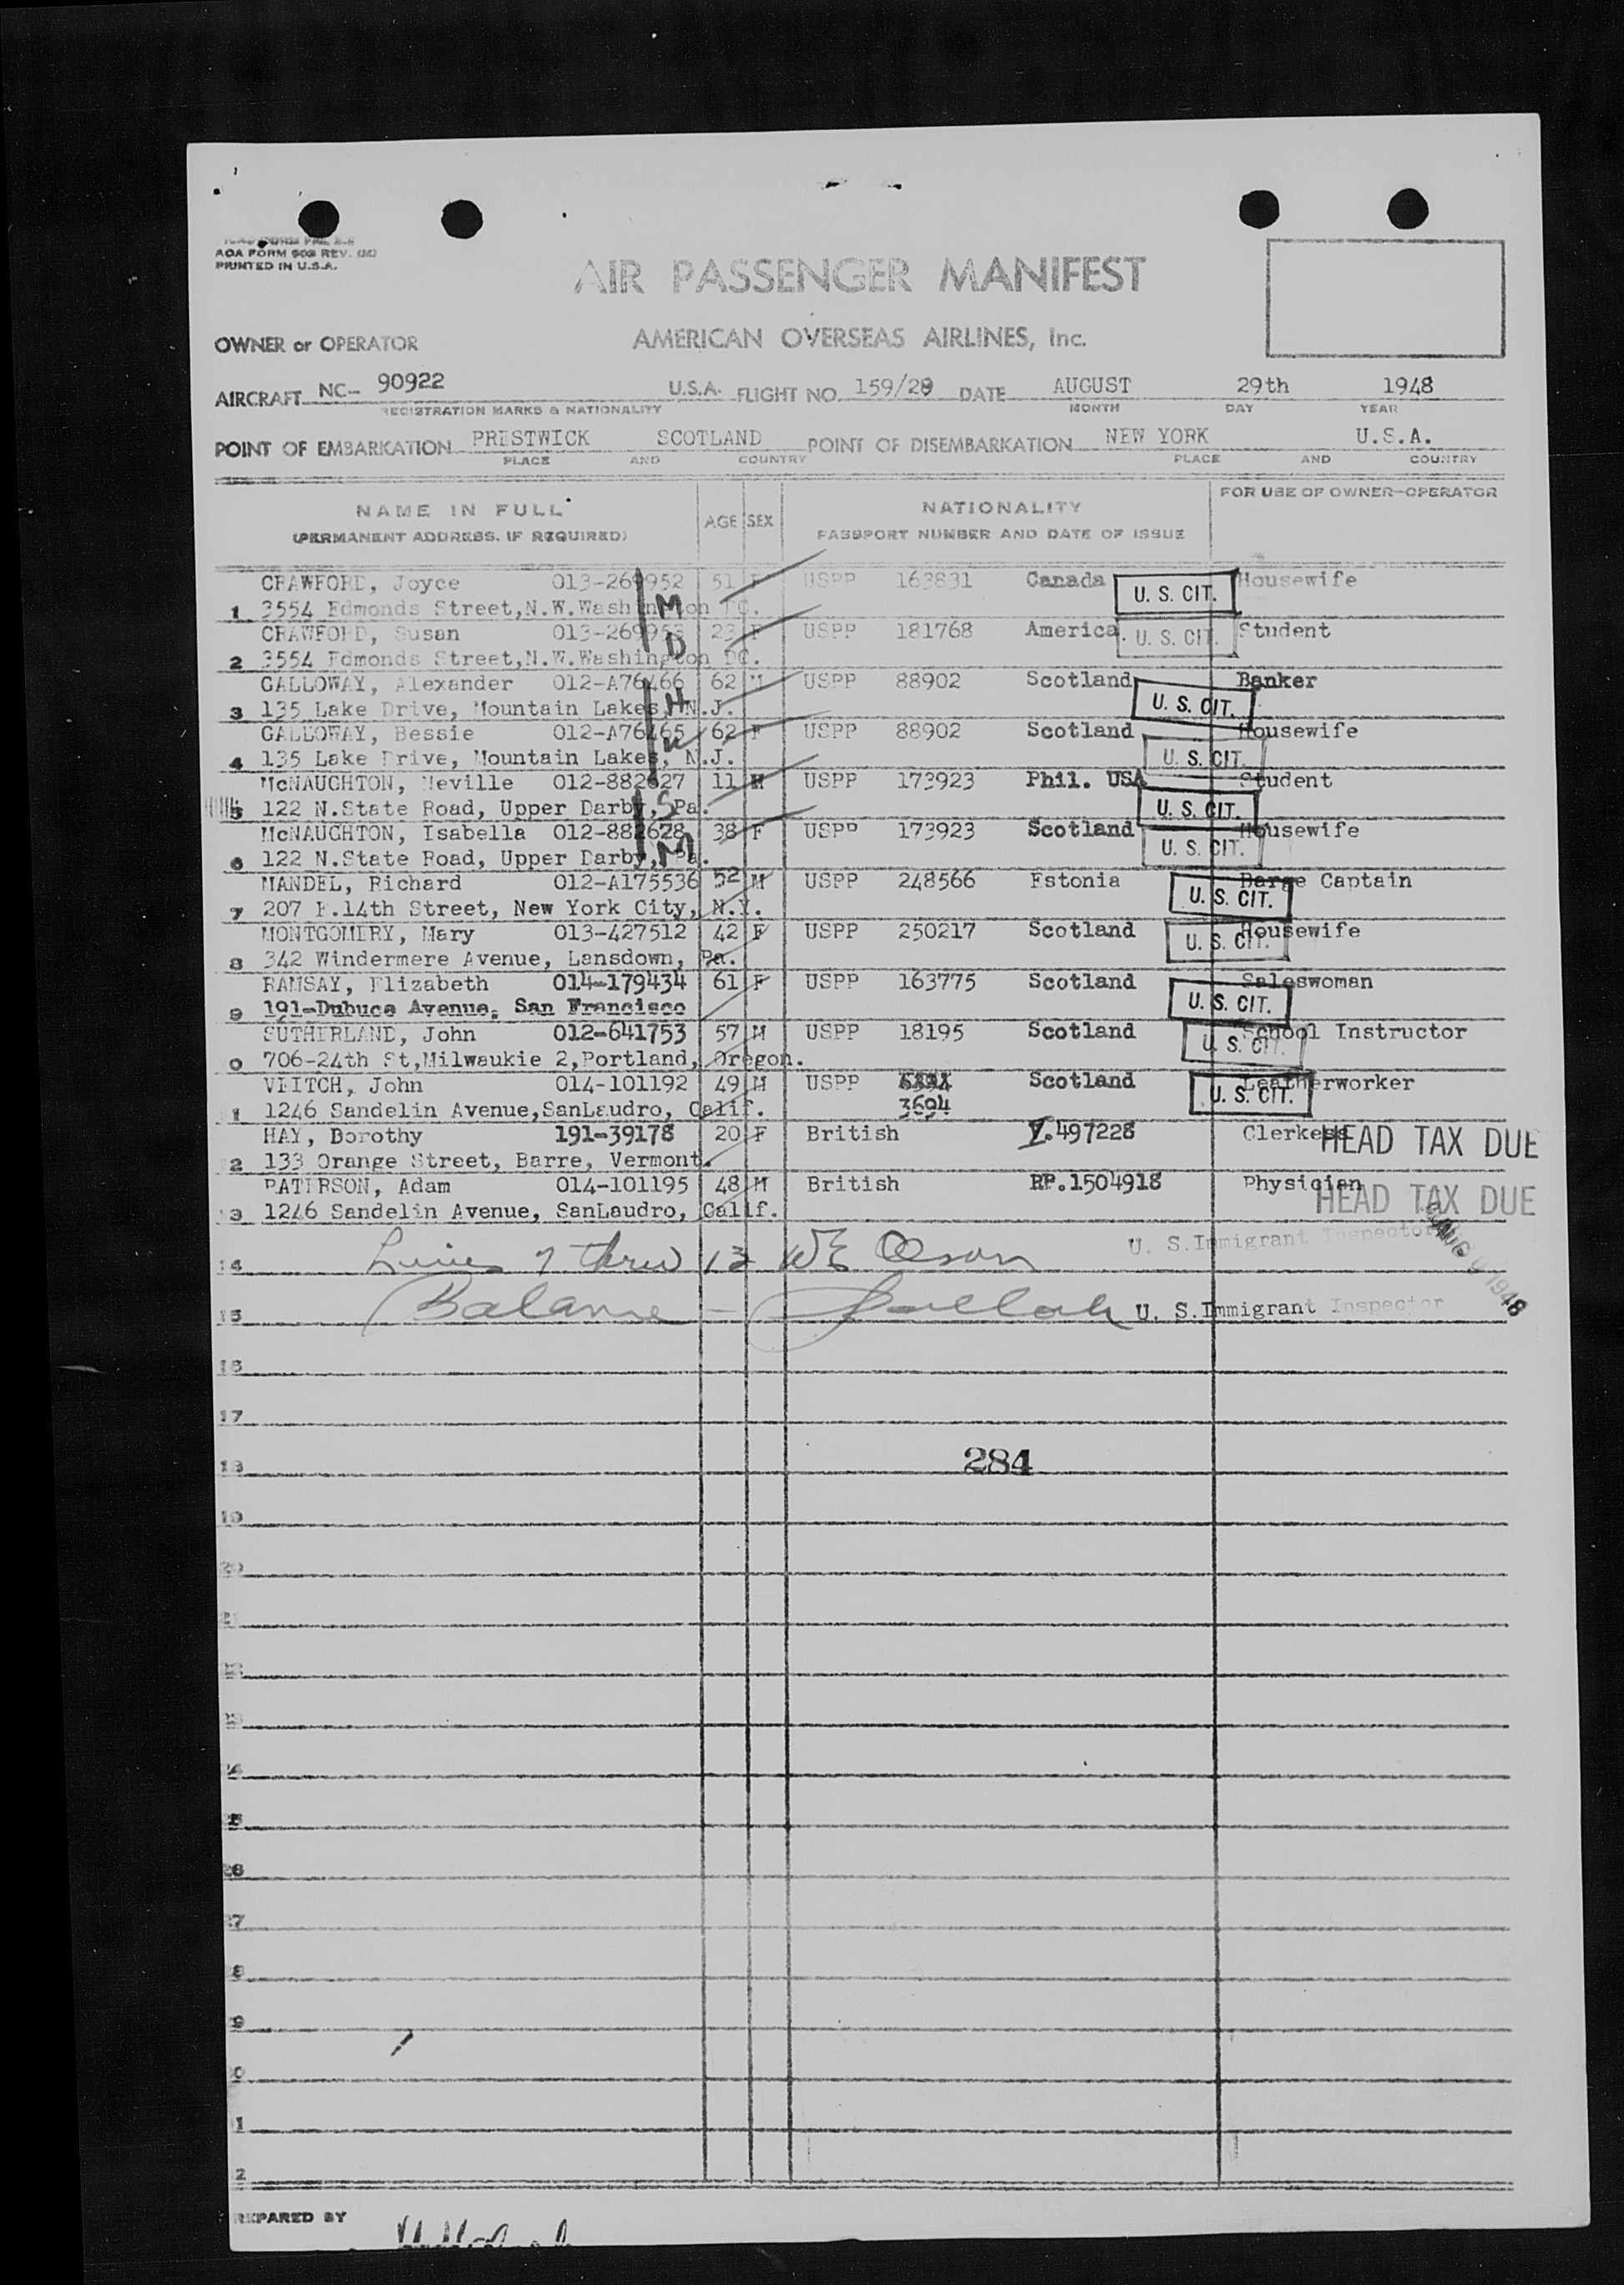 AOA FORM 503 REV.
PRINTED IN U.S.A.
AIR PASSENGER MANIFEST
OWNER or OPERATOR AMERICAN OVERSEAS AIRLINES, Inc.
AIRCRAFT NC- 90922 U.S.A. FLIGHT NO. 159/28 DATE AUGUST 29th 1948
REGISTRATION MARKS & NATIONALITY MONTH DAY YEAR
POINT OF EMBARKATION PRESTWICK SCOTLAND POINT OF DISEMBARKATION NEW YORK U.S.A.
PLACE AND COUNTRY PLACE AND COUNTRY
NAME IN FULL AGE SEX NATIONALITY FOR USE OF OWNER-OPERATOR
(PERMANENT ADDRESS, IF REQUIRED) PASSPORT NUMBER AND DATE OF ISSUE
CRAWFORD, Joyce 013-269952 51 F USPP 163831 Canada U. S. CIT. Housewife
1 3554 Edmonds Street,N.W.Washington DC. M
CRAWFORD, Susan 013-269953 23 F USPP 181768 America. U. S. CIT. Student
2 3554 Edmonds Street,N.W.Washington DC. D
GALLOWAY, Alexander 012-A76466 62 M USPP 88902 Scotland U. S. CIT. Banker
3 135 Lake Drive, Mountain Lakes, N.J. H
GALLOWAY, Bessie 012-A76465 62 F USPP 88902 Scotland U. S. CIT. Housewife
4 135 Lake Drive, Mountain Lakes, N.J. W
McNAUGHTON, Neville 012-882627 11 M USPP 173923 Phil. USA U. S. CIT. Student
5 122 N.State Road, Upper Darby, Pa. S
McNAUGHTON, Isabella 012-882628 38 F USPP 173923 Scotland U. S. CIT. Housewife
6 122 N.State Road, Upper Darby, Pa. M
MANDEL, Richard 012-A175536 52 M USPP 248566 Estonia U. S. CIT. Barge Captain
7 207 E.14th Street, New York City, N.Y.
MONTGOMERY, Mary 013-427512 42 F USPP 250217 Scotland U. S. CIT. Housewife
8 342 Windermere Avenue, Lansdown, Pa.
RAMSAY, Elizabeth 014-179434 61 F USPP 163775 Scotland U. S. CIT. Saleswoman
9 191-Dubuce Avenue, San Francisco
SUTHERLAND, John 012-641753 57 M USPP 18195 Scotland U. S. CIT. School Instructor
0 706-24th St,Milwaukie 2,Portland, Oregon.
VEITCH, John 014-101192 49 M USPP Scotland U. S. CIT. Leatherworker
1 1246 Sandelin Avenue,SanLeudro, Calif. 3694
HAY, Dorothy 191-39178 20 F British 497228 Clerkess HEAD TAX DUE
2 133 Orange Street, Barre, Vermont.
PATERSON, Adam 014-101195 48 M British RP.1504918 Physician HEAD TAX DUE
3 1246 Sandelin Avenue, SanLaudro, Calif.
14 Lines 7 thru 13 WE Olson U. S. Immigrant Inspector
15 Balance - U. S. Immigrant Inspector
16
17
18 284
19
20
21
22
23
24
25
26
7
8
9
0
1
2
PREPARED BY